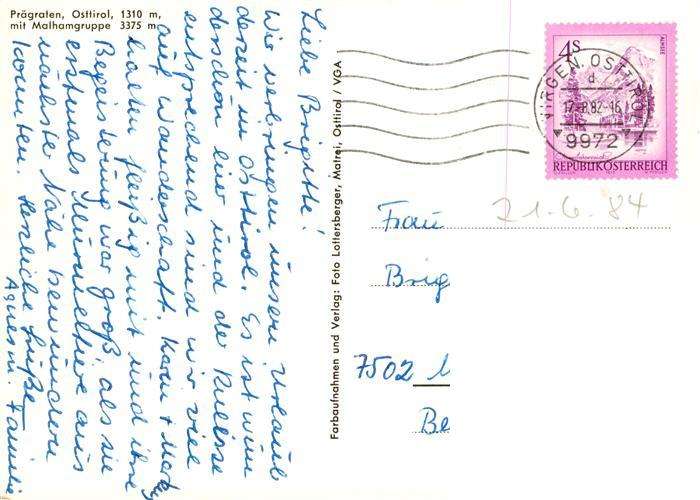 Prägraten, Osttirol, 1310 m,
mit Malhamgruppe 3375 m
Liebe Brigitte!
Wir verbringen unseren Urlaub
derzeit in Osttirol. Es ist wun
derschön hier und der Kulisse
entsprechend sind wir viel
auf Wanderschaft. Karin +
halten fleißig mit und ihre
Begeisterung war groß als sie
erstmals Murmeltiere aus
nächster Nähe bewundern
konnten. Herzliche Grüße
Agnes m. Familie
Farbaufnahmen und Verlag: Foto Lottersberger, Matrei, Osttirol / VGA
4S
ALMSEE
REPUBLIK ÖSTERREICH
VIRGEN, OSTTIROL
d
17.-8.82-16
9972
21.6.84
Frau
Brig
7502
Be